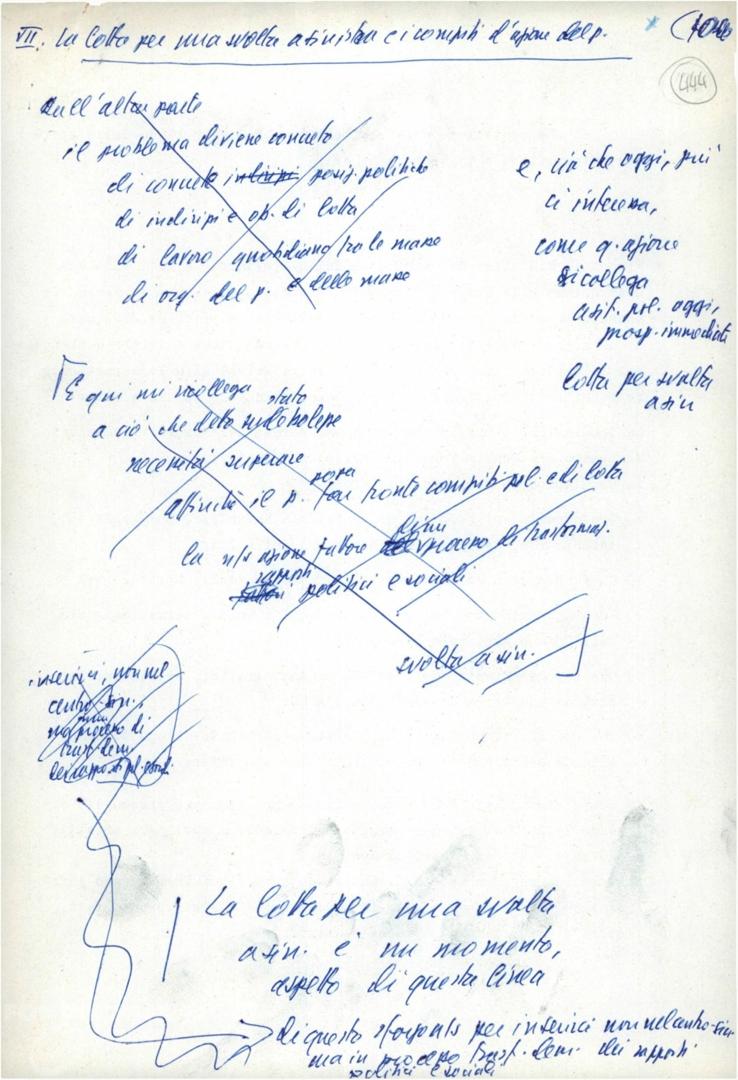 VII. La lotta per una svolta a sinistra e i compiti d'azione del p.
444
Dall'altra parte
il problema diviene concreto
di concrete posiz. politiche
di indirizzi e op. di lotta
di lavoro quotidiano tra le masse
di org. del p. e delle masse
e, ciò che oggi, più
ci interessa,
come q. azione
si collega
a sit. pol. oggi,
prosp. immediate
lotta per svolta
a sin
E qui mi ricollego
a ciò che stato detto
necessità superare
affinché il p. possa far fronte compiti pol. e di lotta
la ns azione fattore processo di trasformaz.
rapporti politici e sociali
svolta a sin.
inserirci, non nel
centro-sin.,
ma processo di
trasf. dem
dei rapporti pol. sociali
La lotta per una svolta
a sin. è un momento,
aspetto di questa linea
di questo sforzo per inserirci non nel centro-sin
ma in processo trasf. dem. dei rapporti
politici e sociali